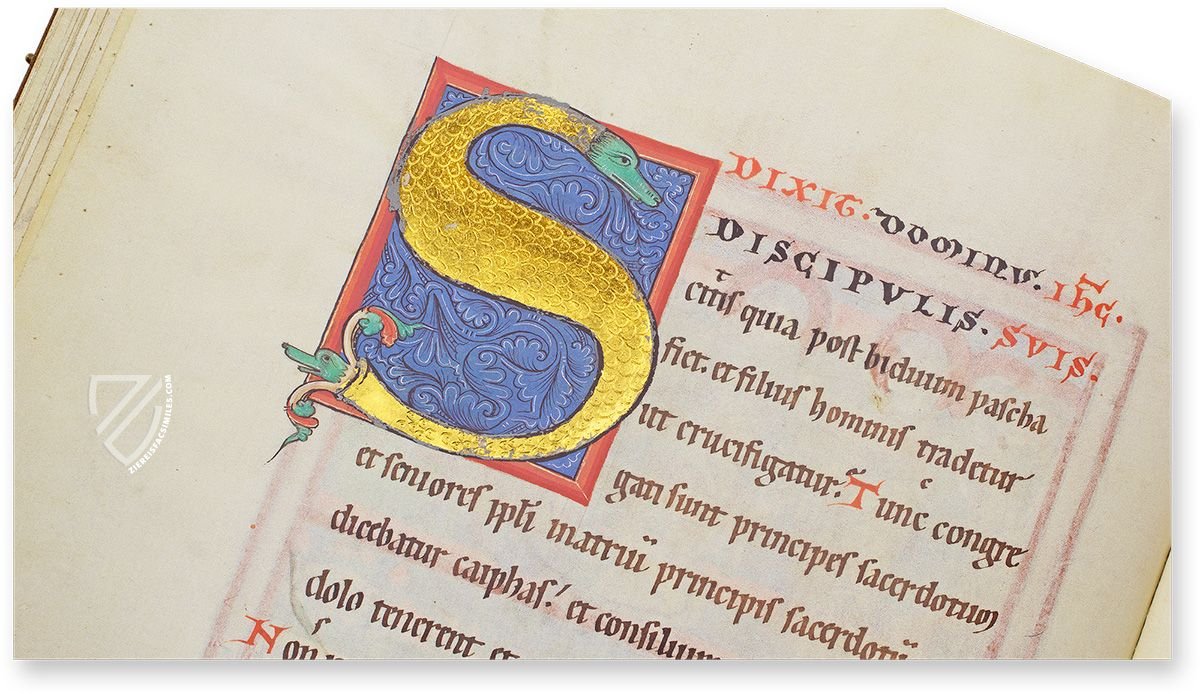 S
DIXIT. DOMINUS. IHC.
DISCIPVLIS. SVIS.
citis quia post biduum pascha
fiet. et filius hominis tradetur
ut crucifigatur. Tunc congre
gati sunt principes sacerdotum
et seniores ppli in atriū principis sacerdotū
dicebatur caiphas. et consilium
dolo tenerent et
Non
ZIEREISFACSIMILES.COM